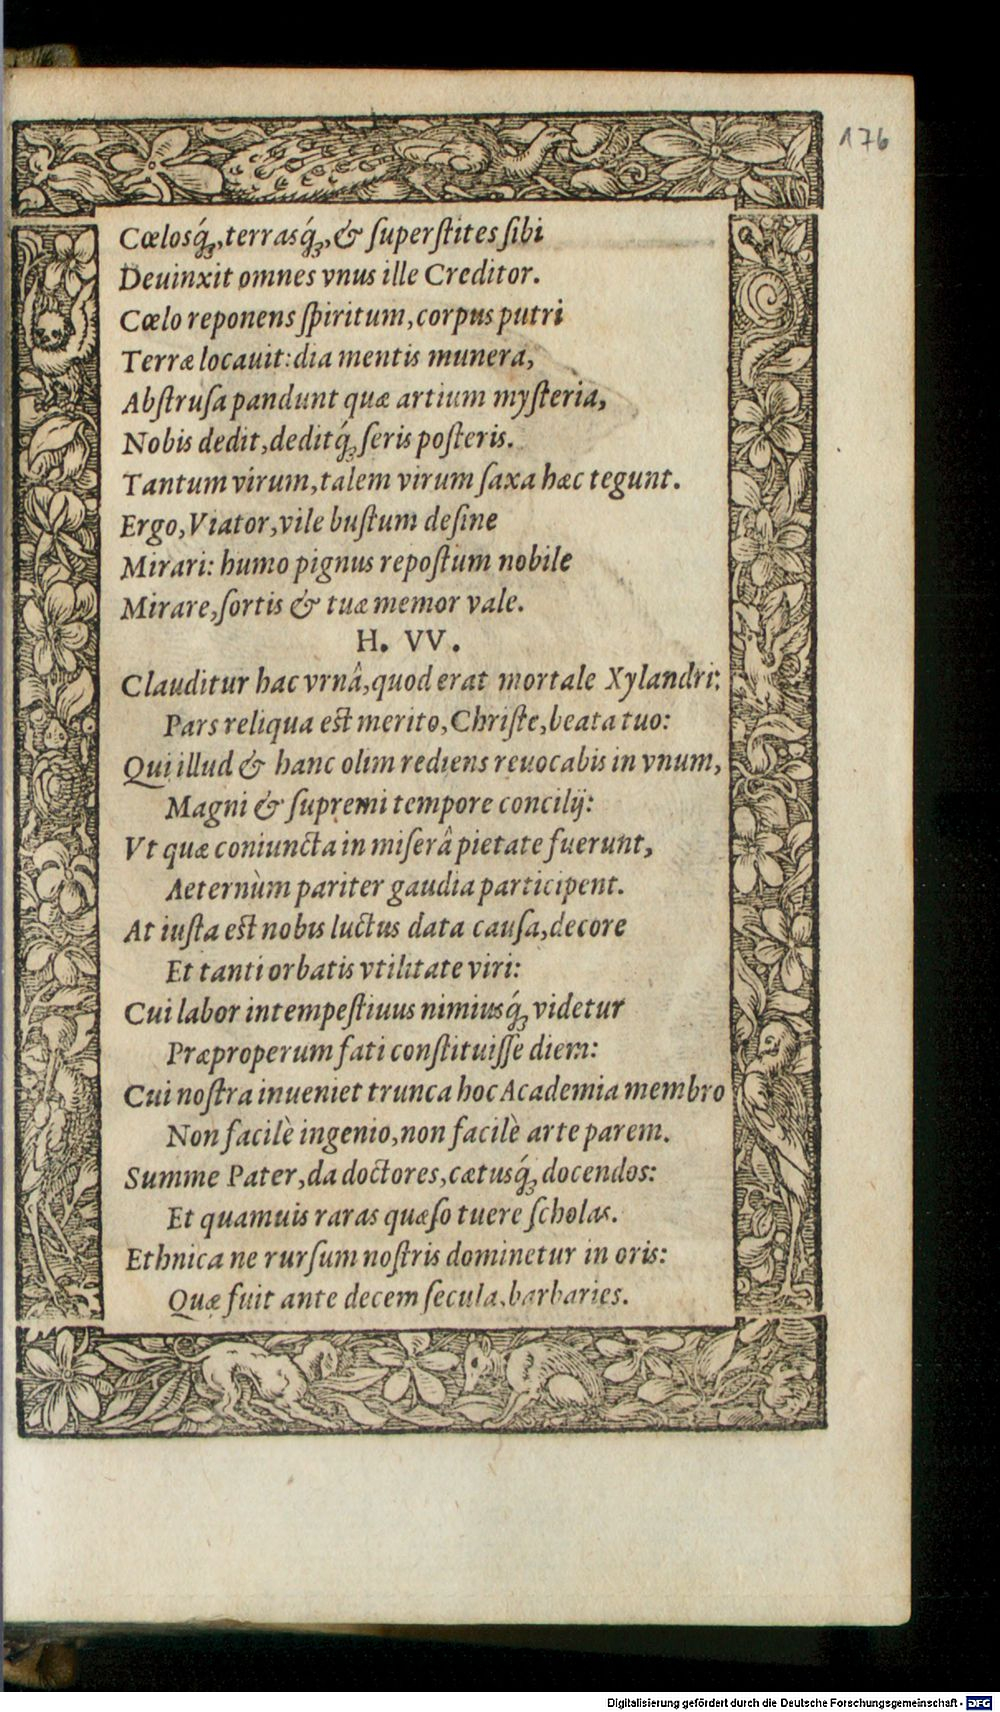 176
Cœlosq́ꝫ, terrasq́ꝫ, & ſuperſtites ſibi
Deuinxit omnes vnus ille Creditor.
Cœlo reponens ſpiritum, corpus putri
Terræ locauit: dia mentis munera,
Abſtruſa pandunt quæ artium myſteria,
Nobis dedit, deditq́ꝫ ſeris poſteris.
Tantum virum, talem virum ſaxa hæc tegunt.
Ergo, Viator, vile buſtum deſine
Mirari: humo pignus repoſtum nobile
Mirare, ſortis & tuæ memor vale.
H. VV.
Clauditur hac vrnâ, quod erat mortale Xylandri:
Pars reliqua eſt merito, Chriſte, beata tuo:
Qui illud & hanc olim rediens reuocabis in vnum,
Magni & ſupremi tempore concilij:
Vt quæ coniuncta in miſerâ pietate fuerunt,
Aeternùm pariter gaudia participent.
At iuſta eſt nobis luctus data cauſa, decore
Et tanti orbatis vtilitate viri:
Cui labor intempeſtiuus nimiusq́ꝫ videtur
Præproperum fati conſtituiſſe diem:
Cui noſtra inueniet trunca hoc Academia membro
Non facilè ingenio, non facilè arte parem.
Summe Pater, da doctores, cætusq́ꝫ docendos:
Et quamuis raras quæſo tuere ſcholas.
Ethnica ne rurſum noſtris dominetur in oris:
Quæ fuit ante decem ſecula, barbaries.
Digitalisierung gefördert durch die Deutsche Forschungsgemeinschaft - DFG